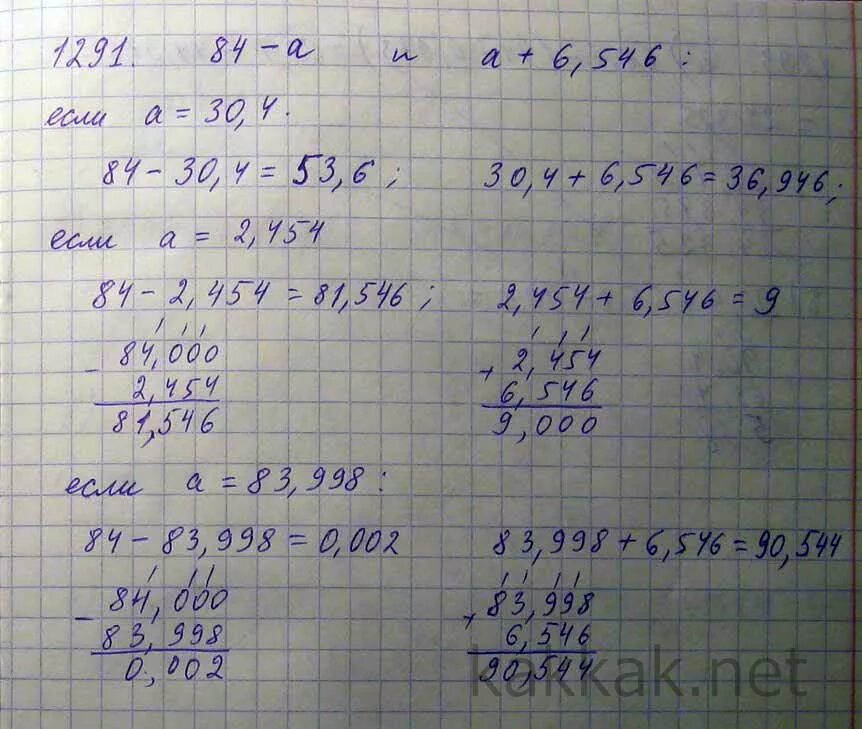 1291. 84 - a и a + 6,546 :
если a = 30,4.
84 - 30,4 = 53,6 ; 30,4 + 6,546 = 36,946 ;
если a = 2,454
84 - 2,454 = 81,546 ; 2,454 + 6,546 = 9
- 84,000 + 2,454
2,454 6,546
81,546 9,000
если a = 83,998 :
84 - 83,998 = 0,002 83,998 + 6,546 = 90,544
- 84,000 + 83,998
83,998 6,546
0,002 90,544
kakkak.net